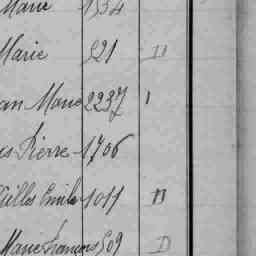 Marie 1334
Marie 921 D
an Marie 2237 1
is Pierre 1706
Gilles Emile 1011 D
Marie François 509 D